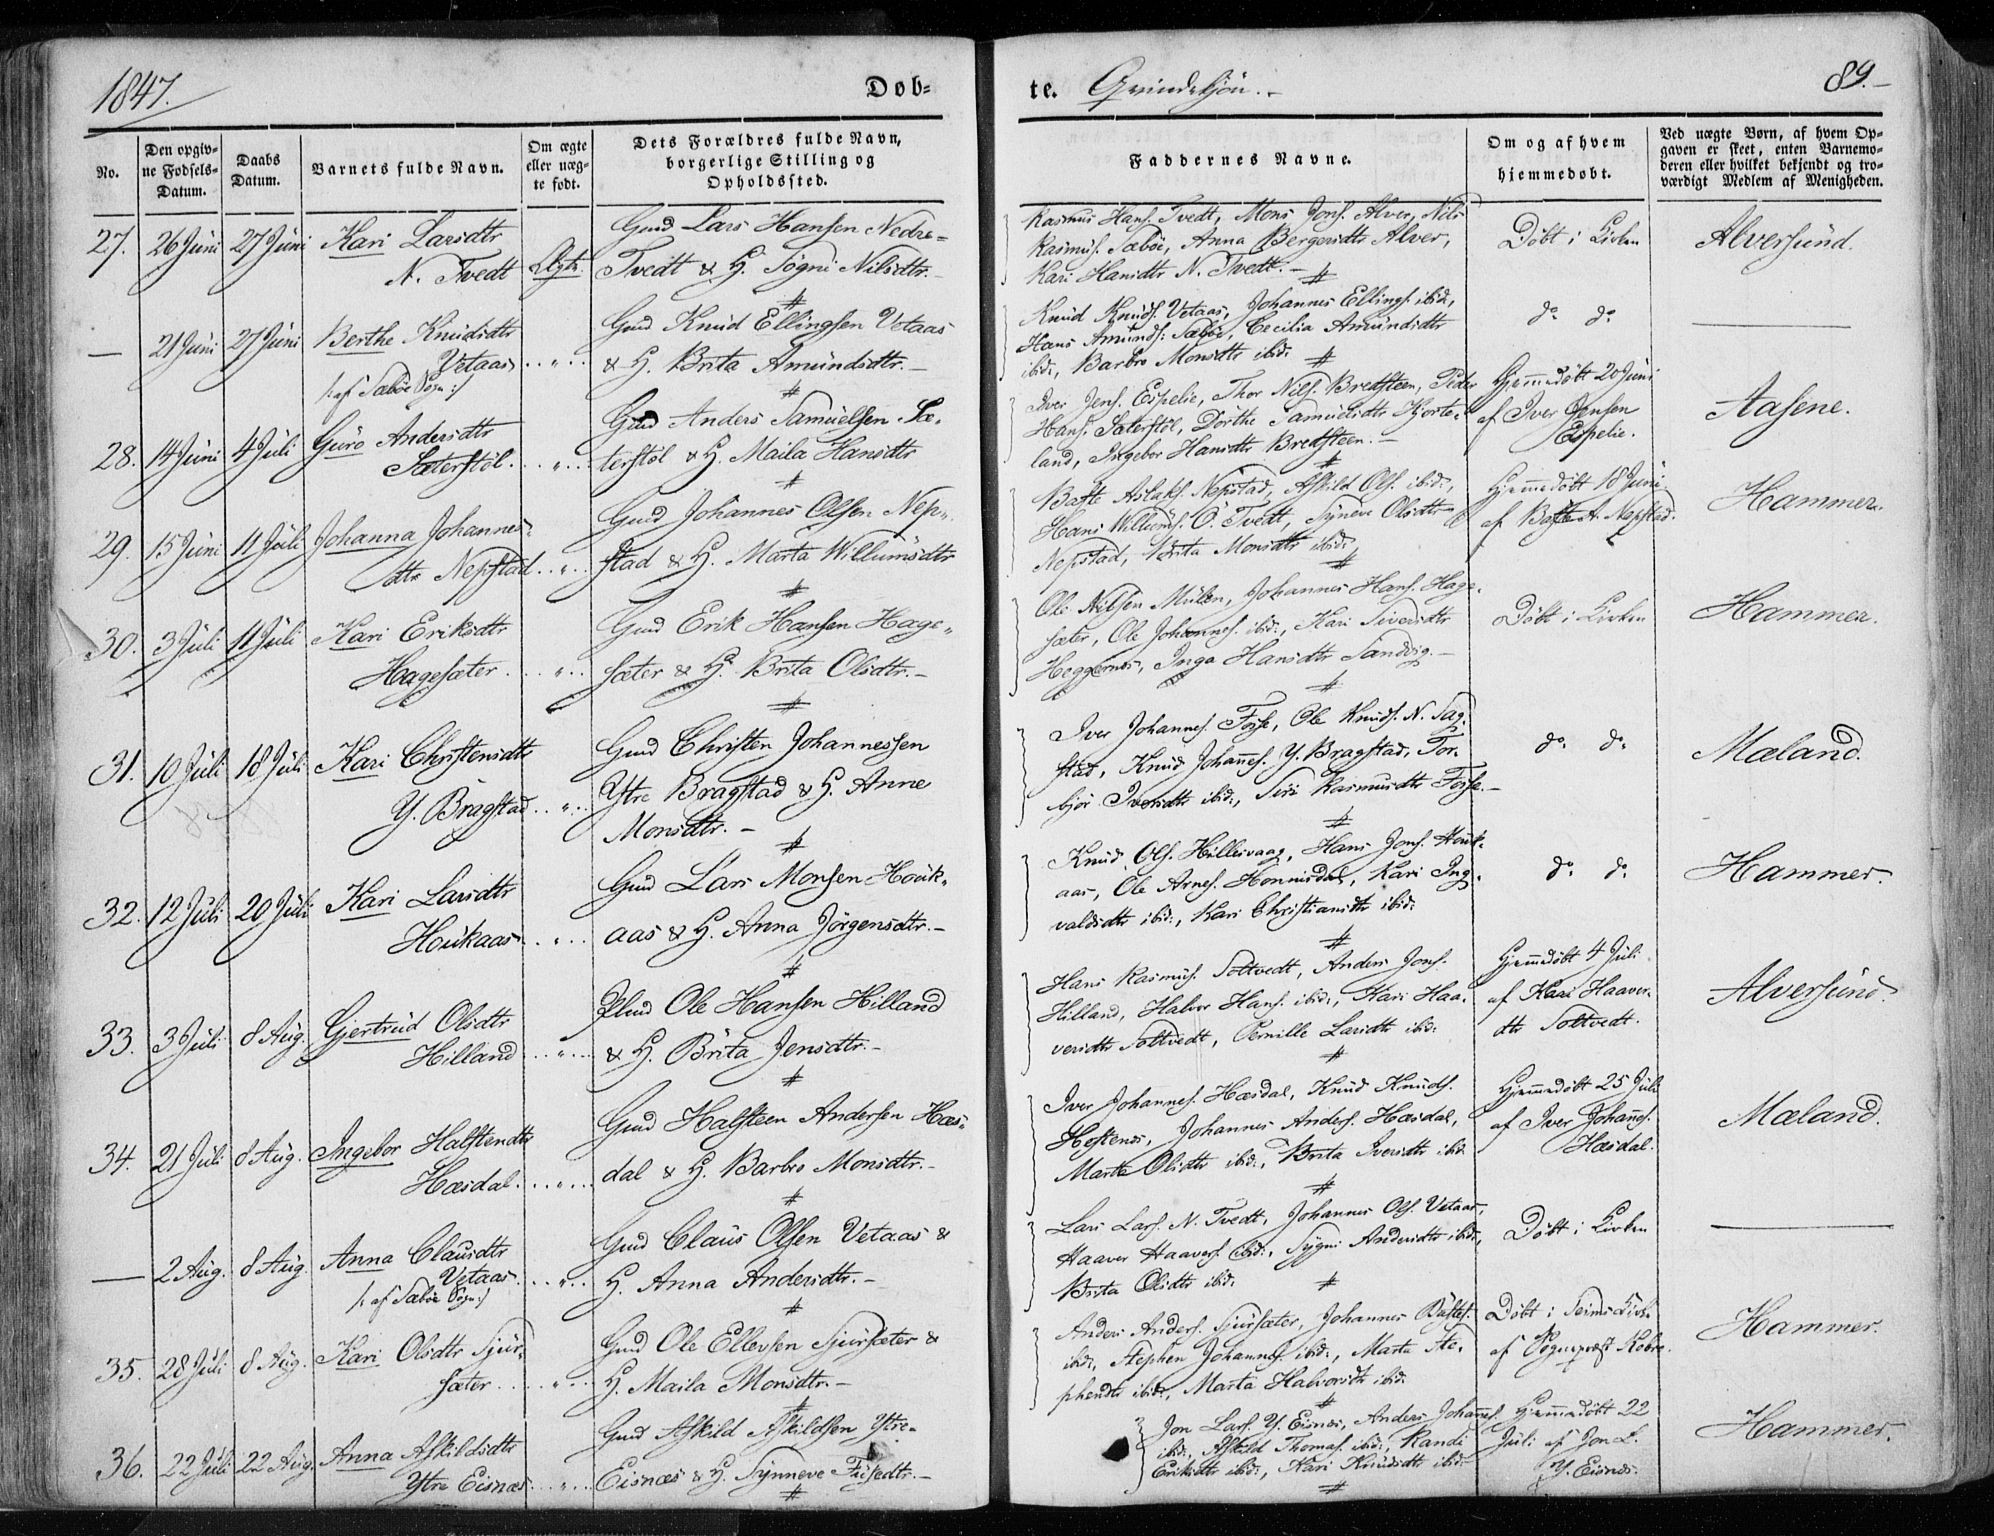 1847.
Døb-
te. Qvindekjön.
89.
No.
Den opgiv-
ne Fødsels-
Datum.
Daabs
Datum.
Barnets fulde Navn.
Om ægte
eller uæg-
te født.
Dets Forældres fulde Navn,
borgerlige Stilling og
Opholdssted.
Faddernes Navne.
Om og af hvem
hjemmedøbt.
Ved uægte Børn, af hvem Op-
gaven er skeet, enten Barnemo-
deren eller hvilket bekjendt og tro-
værdigt Medlem af Menigheden.
27. 26 Juni 27 Juni Kari Larsdtr
N. Tvedt Ægte.
Gmd Lars Hansen Nedre-
Tvedt & H. Sögni Nilsdtr.-
Rasmus Hans. Tvedt, Mons Jons. Alver, Nils
Rasmus. Sæböe, Anna Bergersdtr Alver,
Kari Hansdtr N. Tvedt.-
Döbt i Kirken
Alversund.
— 21 Juni 27 Juni Berthe Knudsdtr
Vetaas
/: af Sæböe Sogn :/
Gmd Knud Ellingsen Vetaas
& H. Brita Amundsdtr.-
Knud Knuds. Vetaas, Johannes Ellings. ibid.,
Hans Amunds. Sæböe, Cecilia Amundsdtr
ibid., Barbro Monsdtr ibid.
do do
28. 14 Juni 4 Juli Guro Andersdtr
Sæterstöl.
Gmd Anders Samuelsen Sæ-
terstöl & H. Maila Hansdtr
Iver Jens. Espelie, Thor Nils. Bredsteen, Peder
Hans. Sæterstöl, Dorthe Samuelsdtr Hjorte-
land, Ingebor Hansdtr Bredsteen.-
Hjemmedöbt 20 Juni
af Iver Jensen
Espelie.
Aasene.
29. 15 Juni 11 Juli Johanna Johannes-
dtr Nepstad
Gmd Johannes Olsen Nep-
stad & H. Marta Willumsdtr
Baste Aslaks. Nepstad, Askild Ols. ibid.,
Hans Willums. Ö. Tvedt, Syneve Olsdtr
Nepstad, Brita Monsdtr ibid.
Hjemmedöbt 18 Juni
af Baste A. Nepstad.
Hammer.
30. 3 Juli 11 Juli Kari Eriksdtr
Hagesæter
Gmd Erik Hansen Hage-
sæter & H. Brita Olsdtr.-
Ole Nilsen Mulen, Johannes Hans. Hage-
sæter, Ole Johannes. ibid., Kari Siversdtr
Heggernes, Inga Hansdtr Sandvig.-
Döbt i Kirken
Hammer.
31. 10 Juli 18 Juli Kari Christensdtr
Y. Bragstad
Gmd Christen Johannessen
Ytre Bragstad & H. Anne
Monsdtr.-
Iver Johannes. Fosse, Ole Knuds. N. Sag-
stad, Knud Johannes. Y. Bragstad, Tor-
björ Iversdtr ibid., Siri Rasmusdtr Fosse.-
do do
Mæland.
32. 12 Juli 20 Juli Kari Larsdtr
Houkaas
Gmd Lars Monsen Houk-
aas & H. Anna Jörgensdtr.-
Knud Ols. Hillesvaag, Hans Jons. Houk-
aas, Ole Arnes. Honnisdal, Kari Ing-
valdsdtr ibid., Kari Christiansdtr ibid.
do do
Hammer.
33. 3 Juli 8 Aug. Gjertrud Olsdtr
Hilland
Ole Hansen Hilland
& H. Brita Jensdtr.-
Hans Rasmus. Soltvedt, Anders Jons.
Hilland, Halvor Hans. ibid., Kari Haa-
versdtr Soltvedt, Pernille Larsdtr ibid.
Hjemmedöbt 4 Juli
af Kari Haavers-
dtr Soltvedt.
Alversund.
34. 21 Juli 8 Aug. Ingebor Halstendtr
Hæsdal
Gmd Halsteen Andersen Hæs-
dal & H. Barbro Monsdtr.-
Iver Johannes. Hæsdal, Knud Knuds.
Hestenes, Johannes Anders. Hæsdal,
Marta Olsdtr ibid., Brita Iversdtr ibid.
Hjemmedöbt 25 Juli
af Iver Johans.
Hæsdal.
Mæland.
— 2 Aug. 8 Aug. Anna Clausdtr
Vetaas
/: af Sæböe Sogn :/
Gmd Claus Olsen Vetaas &
H. Anna Andersdtr.-
Lars Lars. N. Tvedt, Johannes Ols. Vetaas,
Haaver Haavers. ibid., Sygni Andersdtr ibid.,
Brita Olsdtr ibid.
Döbt i Kirken
35. 28 Juli 8 Aug. Kari Olsdtr Sjur-
sæter
Gmd Ole Ellevsen Sjursæter &
H. Maila Monsdtr.-
Anders Anders. Sjursæter, Johannes Bastes.
ibid., Stephen Johannes. ibid., Marta Ste-
phensdtr ibid., Marta Halvorsdtr ibid.
Döbt i Seims Kirke
af Sognepræst Kobro.
Hammer.
36. 22 Juli 22 Aug. Anna Askildsdtr
Ytre Eisnæs
Gmd Askild Askildsen Ytre-
Eisnæs & H. Synneve Fusedtr.-
Jon Lars. Y. Eisnæs, Anders Johannes.
ibid., Askild Thomas. ibid., Randi
Eriksdtr ibid., Kari Knudsdtr ibid.
Hjemmedöbt 22
Juli af Jon L.
Y. Eisnes.
Hammer.